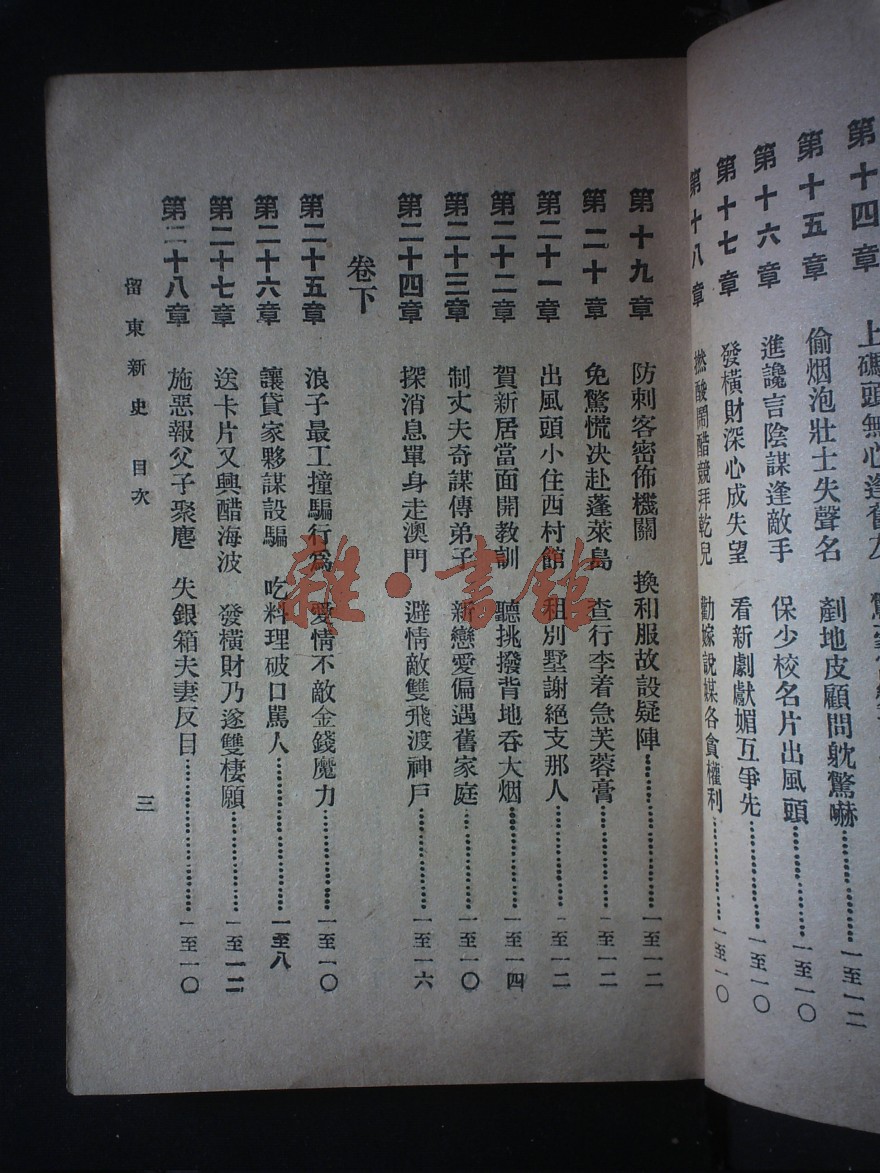 第十四章 上碼頭無心逢舊友
第十五章 偷烟泡壯士失聲名 剷地皮顧問躭驚嚇 一至一二
第十六章 進讒言陰謀逢敵手 保少校名片出風頭 一至一〇
第十七章 發橫財深心成失望 看新劇獻媚互爭先 一至一〇
第十八章 撚酸鬧醋競拜乾兒 勸嫁說媒各貪權利 一至一〇
第十九章 防刺客密佈機關 換和服故設疑陣 一至一二
第二十章 免驚慌决赴蓬萊島 查行李着急芙蓉膏 一至一二
第二十一章 出風頭小住西村館 租別墅謝絕支那人 一至一二
第二十二章 賀新居當面開教訓 聽挑撥背地吞大烟 一至一四
第二十三章 制丈夫奇謀傳弟子 新戀愛偏遇舊家庭 一至一〇
第二十四章 探消息單身走澳門 避情敵雙飛渡神戶 一至一六
卷下
第二十五章 浪子最工撞騙行爲 愛情不敵金錢魔力 一至一〇
第二十六章 讓貸家夥謀設騙 吃料理破口罵人 一至八
第二十七章 送卡片又興醋海波 發橫財乃遂雙棲願 一至一二
第二十八章 施惡報父子聚麀 失銀箱夫妻反目 一至一〇
留東新史 目次
三
雜·書館